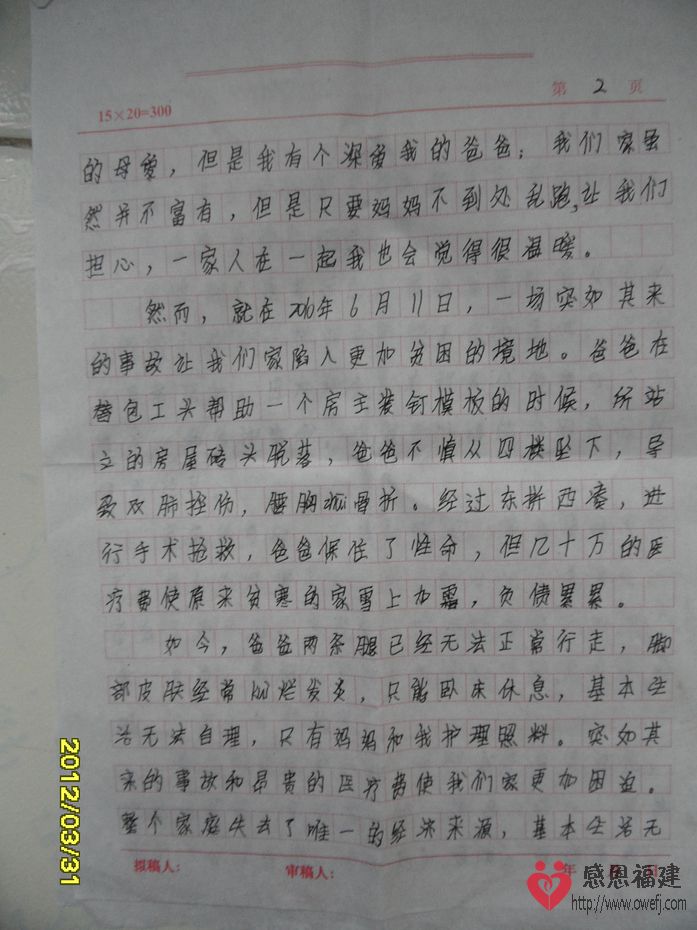 第 2 页
15×20=300
的母爱，但是我有个深爱我的爸爸；我们家虽
然并不富有，但是只要妈妈不到处乱跑，让我们
担心，一家人在一起我也会觉得很温暖。
然而，就在2010年6月11日，一场突如其来
的事故让我们家陷入更加贫困的境地。爸爸在
替包工头帮助一个房主装钉模板的时候，所站
立的房屋砖头脱落，爸爸不慎从四楼坠下，导
致双肺挫伤，腰胸骨折。经过东拼西凑，进
行手术抢救，爸爸保住了性命，但几十万的医
疗费使原来贫寒的家雪上加霜，负债累累。
如今，爸爸两条腿已经无法正常行走，脚
部皮肤经常烂发炎，只能卧床休息，基本生
活无法自理，只有妈妈和我护理照料。突如其
来的事故和昂贵的医疗费使我们家更加困迫。
整个家庭失去了唯一的经济来源，基本生活无
拟稿人： 审稿人： 年
2012/03/31
感恩福建
http://www.owefj.com